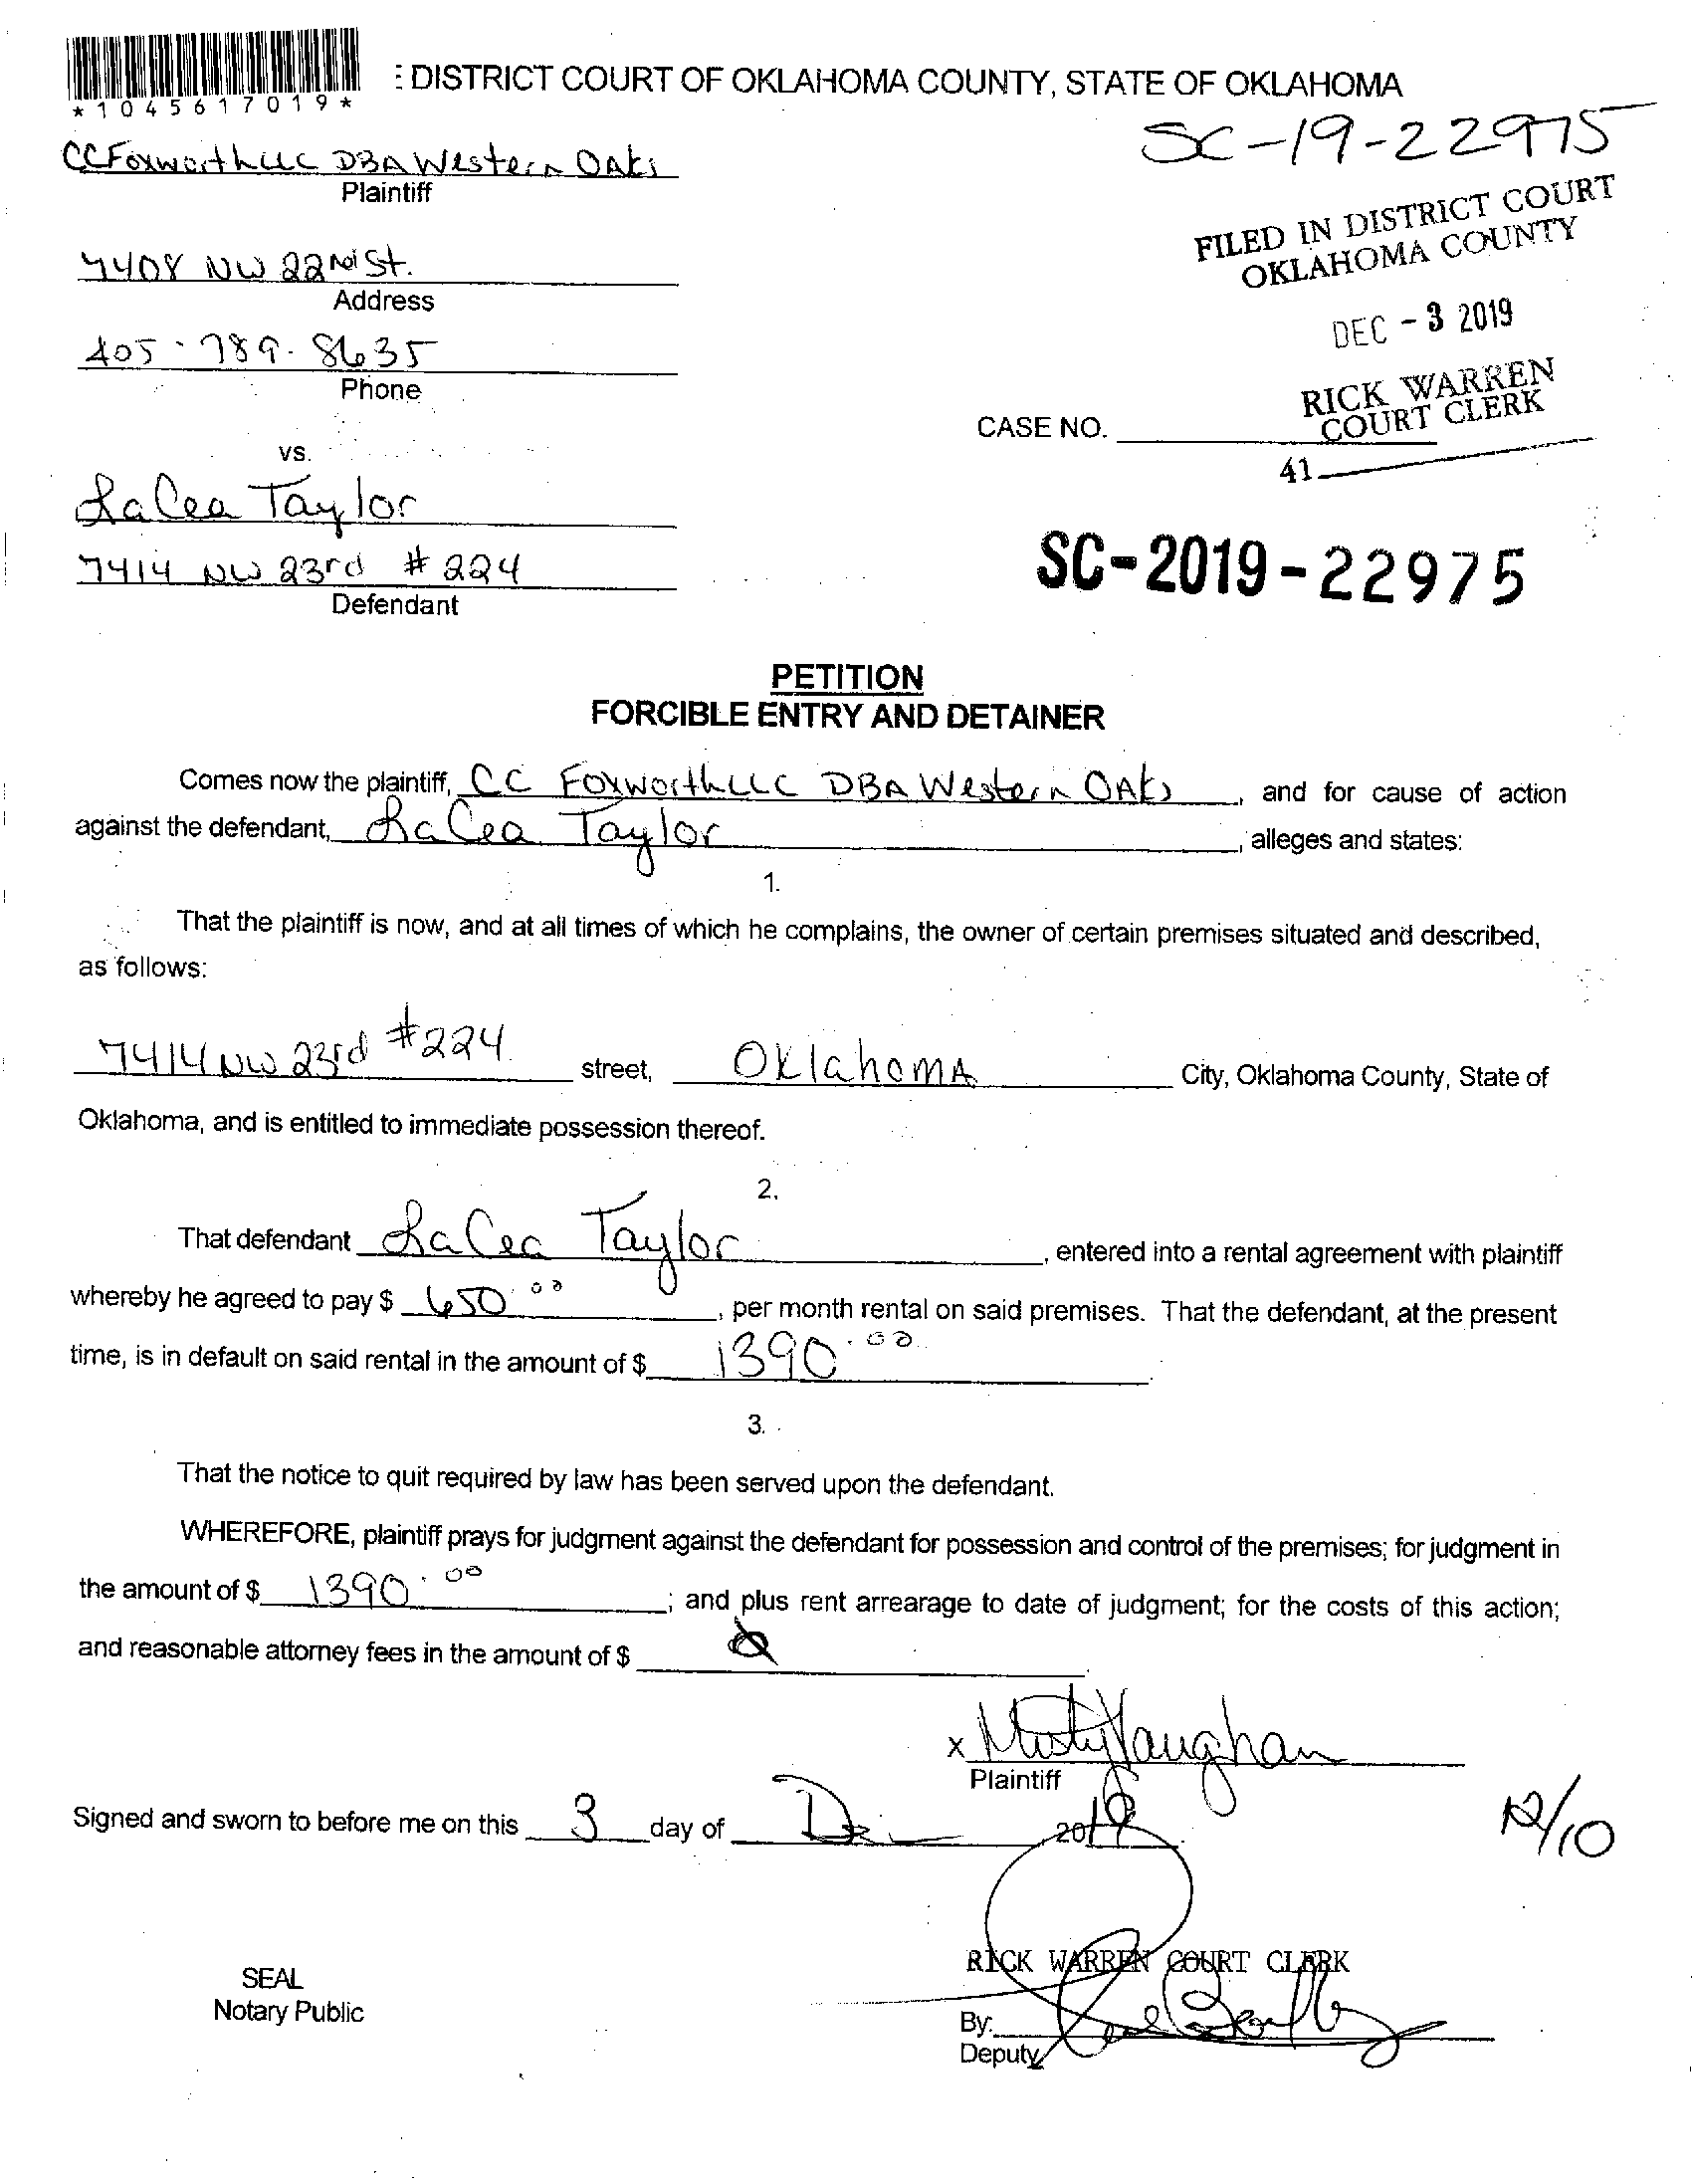 *1045617019*
: DISTRICT COURT OF OKLAHOMA COUNTY, STATE OF OKLAHOMA
SC-19-22975
CC Foxworth LLC DBA Western OAks
Plaintiff
FILED IN DISTRICT COURT
OKLAHOMA COUNTY
7408 NW 22nd St.
Address
DEC - 3 2019
405-789-8635
Phone
RICK WARREN
COURT CLERK
CASE NO.
41
vs.
LaCea Taylor
7414 NW 23rd # 224
Defendant
SC-2019-22975
PETITION
FORCIBLE ENTRY AND DETAINER
Comes now the plaintiff, CC Foxworth LLC DBA Western OAks, and for cause of action
against the defendant, LaCea Taylor, alleges and states:
1.
That the plaintiff is now, and at all times of which he complains, the owner of certain premises situated and described,
as follows:
7414 NW 23rd #224 street, OklahomA City, Oklahoma County, State of
Oklahoma, and is entitled to immediate possession thereof.
2.
That defendant LaCea Taylor, entered into a rental agreement with plaintiff
whereby he agreed to pay $ 650.00, per month rental on said premises. That the defendant, at the present
time, is in default on said rental in the amount of $ 1390.00.
3.
That the notice to quit required by law has been served upon the defendant.
WHEREFORE, plaintiff prays for judgment against the defendant for possession and control of the premises; for judgment in
the amount of $ 1390.00; and plus rent arrearage to date of judgment; for the costs of this action;
and reasonable attorney fees in the amount of $ Ø
x Misty Vaughan
Plaintiff
Signed and sworn to before me on this 3 day of Dec, 2019.
12/10
RICK WARREN COURT CLERK
SEAL
Notary Public
By:
Deputy